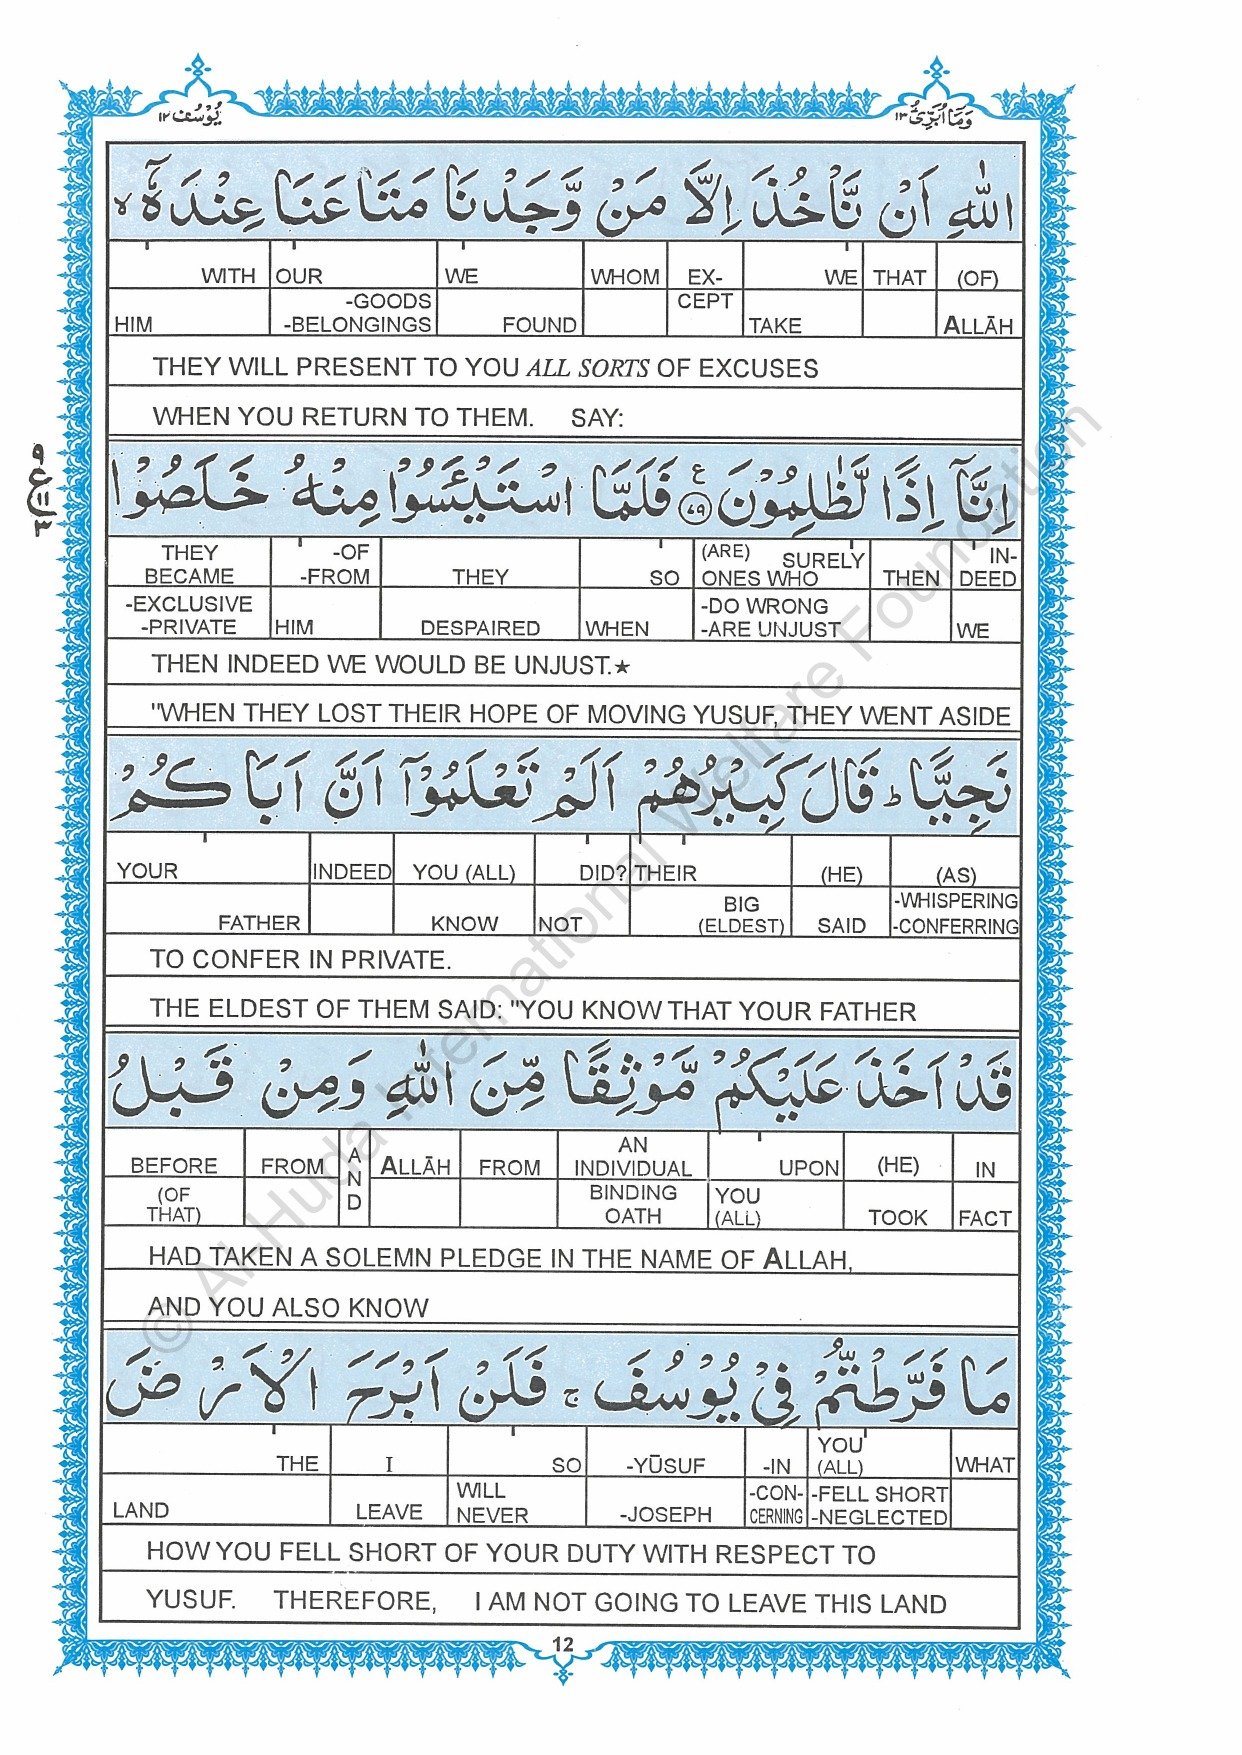 يُوْسُف ١٢
وَمَآ اُبَرِّئُ ١٣
اللّٰهِ اَنْ نَّاْخُذَ اِلَّا مَنْ وَّجَدْنَا مَتَاعَنَا عِنْدَهٗٓ ۙ
WITH OUR WE WHOM EX- WE THAT (OF)
HIM -GOODS -BELONGINGS FOUND CEPT TAKE ALLĀH
THEY WILL PRESENT TO YOU ALL SORTS OF EXCUSES
WHEN YOU RETURN TO THEM. SAY:
اِنَّآ اِذًا لَّظٰلِمُوْنَ ﴿٧٩﴾ ع فَلَمَّا اسْتَيْـَٔسُوْا مِنْهُ خَلَصُوْا
THEY BECAME -OF -FROM THEY SO (ARE) SURELY ONES WHO THEN IN- DEED
-EXCLUSIVE -PRIVATE HIM DESPAIRED WHEN -DO WRONG -ARE UNJUST WE
THEN INDEED WE WOULD BE UNJUST.★
"WHEN THEY LOST THEIR HOPE OF MOVING YUSUF, THEY WENT ASIDE
نَجِيًّا ؕ قَالَ كَبِيْرُهُمْ اَلَمْ تَعْلَمُوْٓا اَنَّ اَبَاكُمْ
YOUR INDEED YOU (ALL) DID? THEIR (HE) (AS)
FATHER KNOW NOT BIG (ELDEST) SAID -WHISPERING -CONFERRING
TO CONFER IN PRIVATE.
THE ELDEST OF THEM SAID: "YOU KNOW THAT YOUR FATHER
قَدْ اَخَذَ عَلَيْكُمْ مَّوْثِقًا مِّنَ اللّٰهِ وَمِنْ قَبْلُ
BEFORE FROM AND ALLĀH FROM AN INDIVIDUAL UPON (HE) IN
(OF THAT) BINDING OATH YOU (ALL) TOOK FACT
HAD TAKEN A SOLEMN PLEDGE IN THE NAME OF ALLAH,
AND YOU ALSO KNOW
مَا فَرَّطْتُّمْ فِيْ يُوْسُفَ ۚ فَلَنْ اَبْرَحَ الْاَرْضَ
THE I SO -YŪSUF -IN YOU (ALL) WHAT
LAND LEAVE WILL NEVER -JOSEPH -CON- CERNING -FELL SHORT -NEGLECTED
HOW YOU FELL SHORT OF YOUR DUTY WITH RESPECT TO
YUSUF. THEREFORE, I AM NOT GOING TO LEAVE THIS LAND
12
© Al-Huda International Welfare Foundation